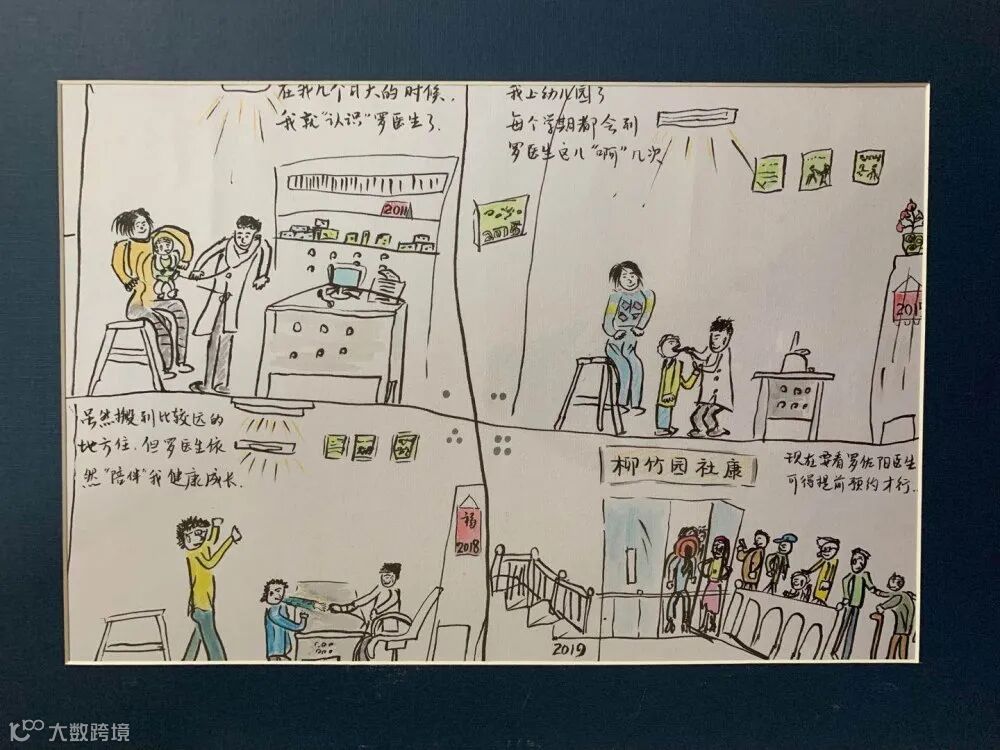 在我几个月大的时候,
我就“认识”罗医生了.
2011
我上幼儿园了
每个学期都会到
罗医生这儿“啊”几次
2015
201
虽然搬到比较远的
地方住,但罗医生依
然“陪伴”我健康成长.
福
2018
柳竹园社康
现在要看罗佐阳医生
可得提前预约才行.
2019
大数跨境